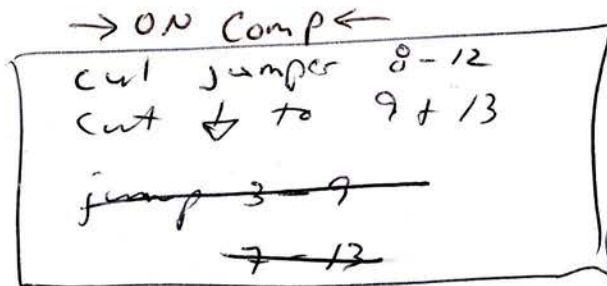 → ON Comp ←
cut jumper 8-12
cut ⏚ to 9 + 13
jump 3-9
7-13